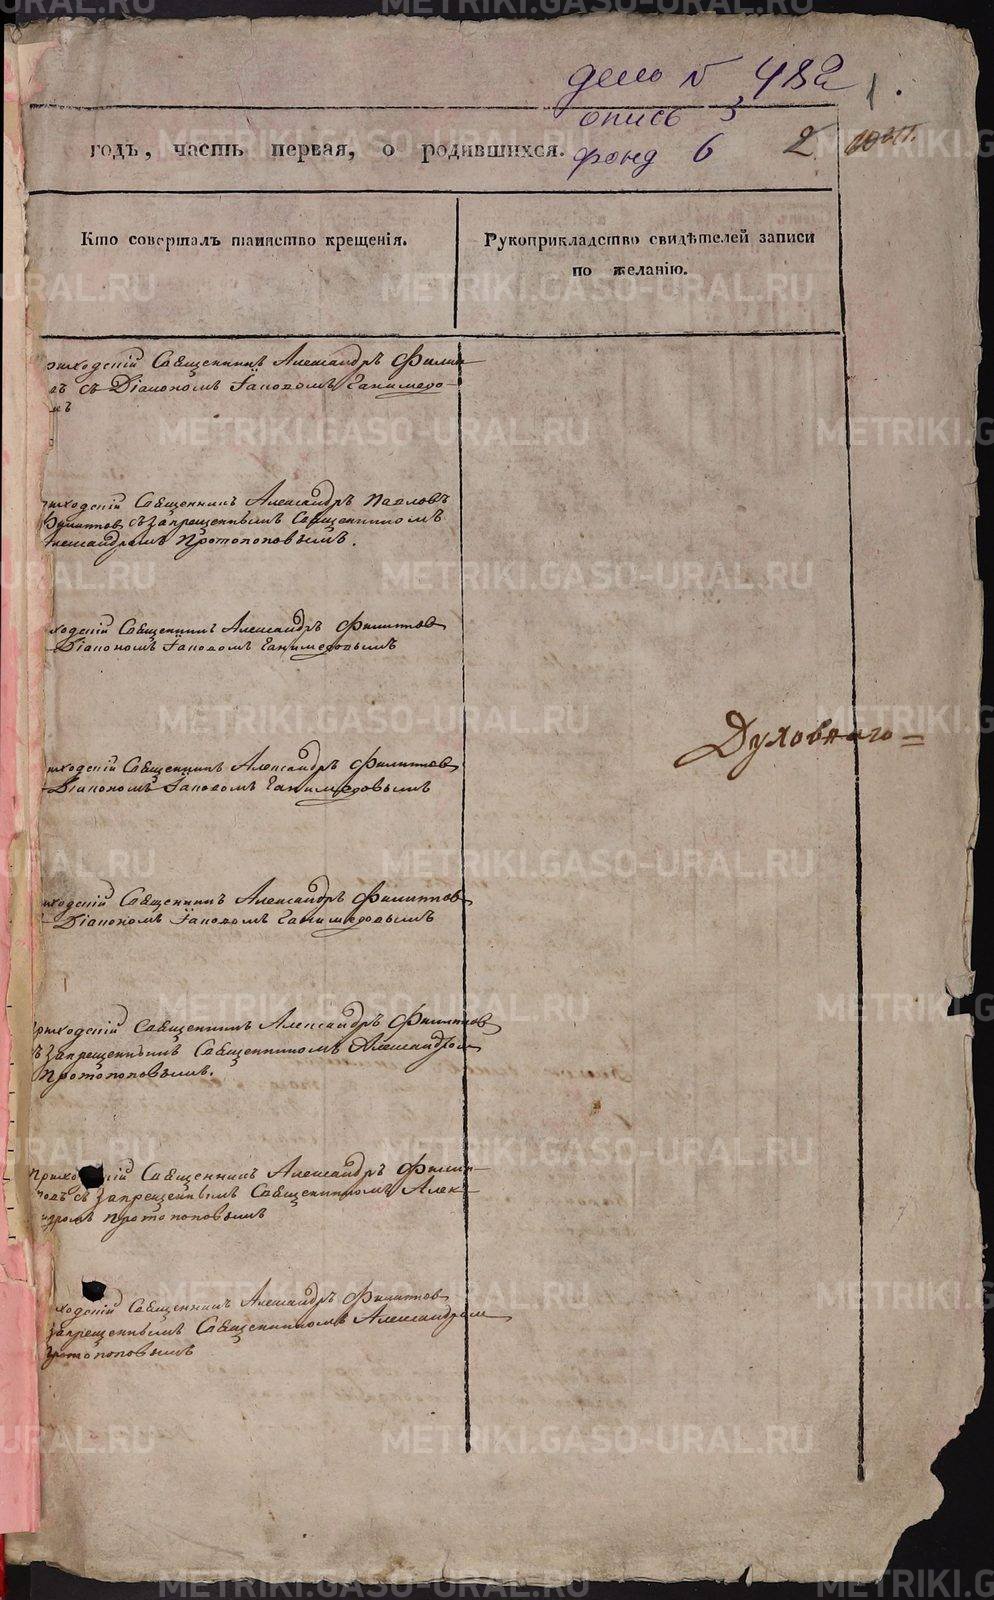 дело № 482 1.
опись 3
фонд 6 2
годъ, часть первая, о родившихся.
Кто совершалъ таинство крещенія.
Рукоприкладство свидѣтелей записи
по желанію.
риходскій Священникъ Александръ Филип-
въ съ Діакономъ Іаковомъ Ганимедо-
мъ
риходскій Священникъ Александръ Павловъ
Филиппов съ запрещеннымъ Священникомъ
лександромъ Протопоповымъ.
ходскій Священникъ Александръ Филиппов
Діакономъ Іаковомъ Ганимедовымъ
Духовнаго=
иходскій Священникъ Александръ Филиппов
Діакономъ Іаковомъ Ганимедовымъ
иходскій Священникъ Александръ Филиппов
Діакономъ Іаковомъ Ганимедовымъ
риходскій Священникъ Александръ Филиппов
ъ запрещеннымъ Священникомъ Александром
Протопоповымъ.
Прихо скій Священникъ Александръ Филип-
повъ съ запрещеннымъ Священникомъ Алек-
ндромъ Протопоповымъ
ходскій Священникъ Александръ Филиппов
запрещеннымъ Священникомъ Александром
Протопоповымъ
METRIKI.GASO-URAL.RU